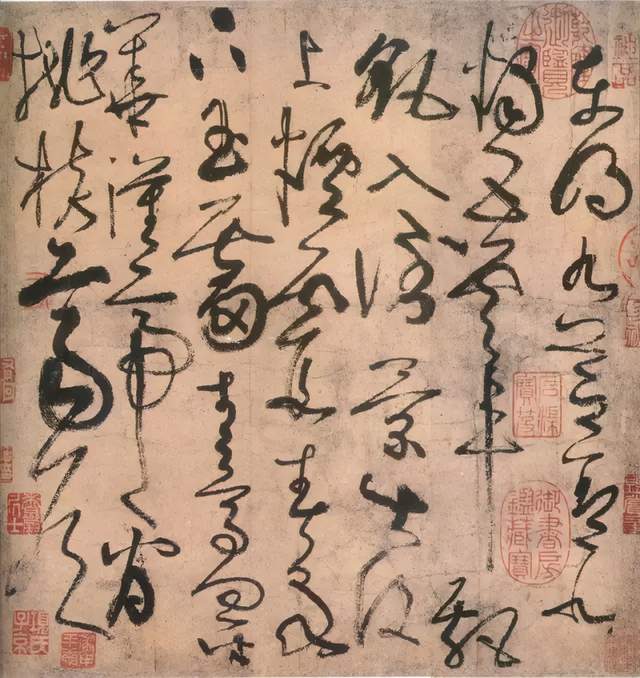 東明九芝蓋北
燭五雲車飄
飖入倒景出没
上煙霞春泉
下玉霤青鳥向金
華漢帝看
桃核齊侯問
御書房鑑藏寶